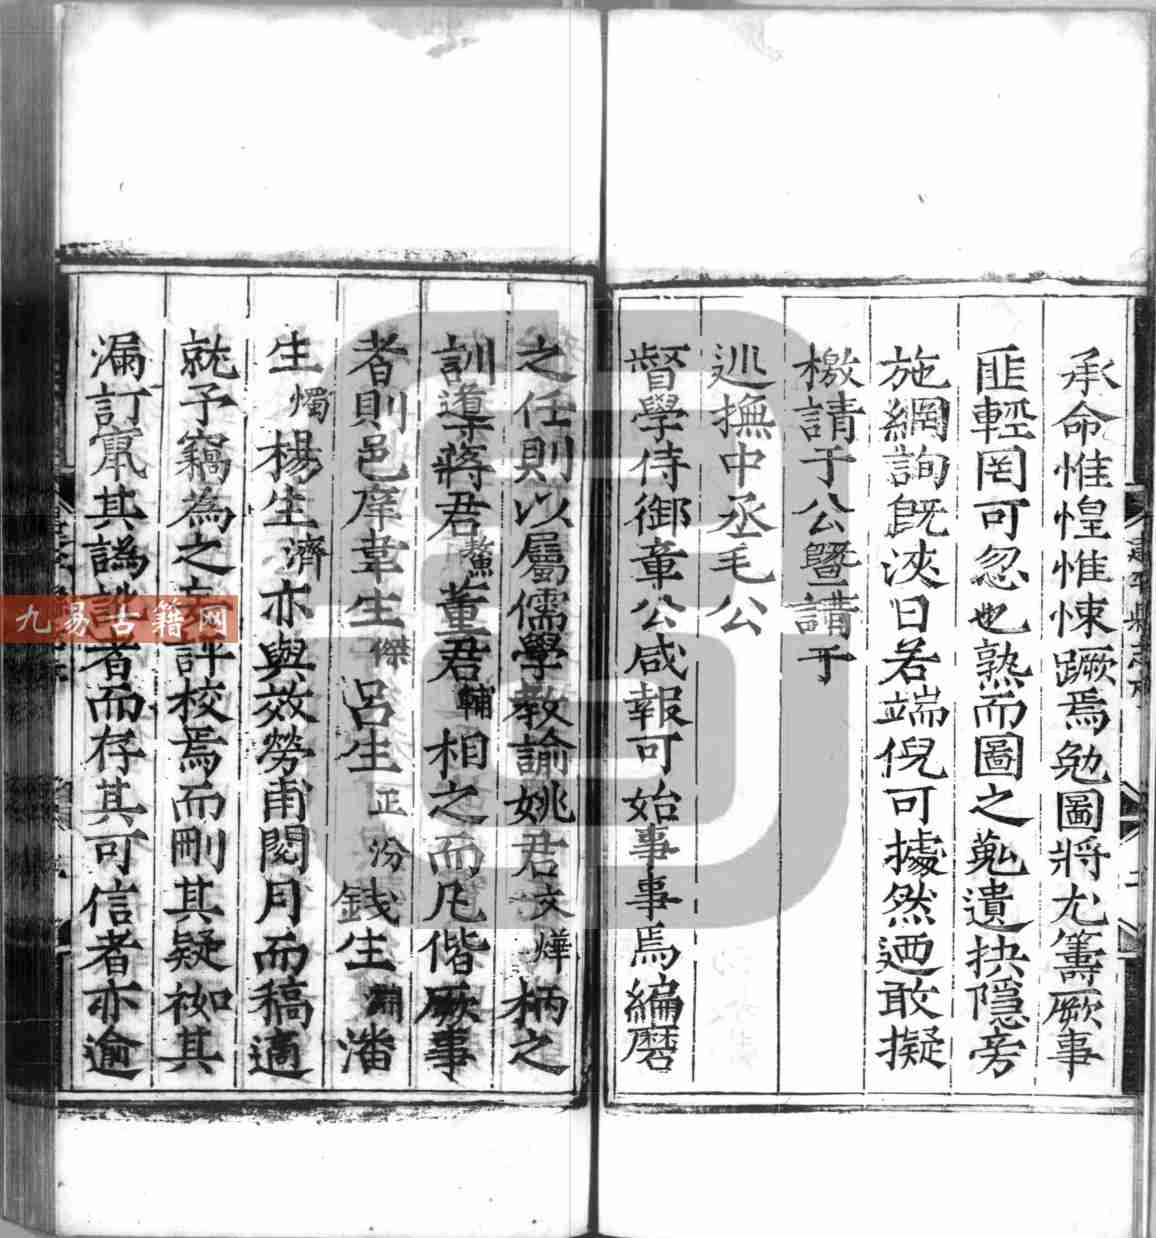 承命惟惶惟悚蹶焉勉圖將尤籌厥事
匪輕罔可忽也熟而圖之蒐遺抉隠旁
施網詢既浹日若端倪可據然迺敢擬
檄請于公曁請于
廵撫中丞毛公
督學侍御章公咸報可始事事焉編磨
之任則以屬儒學教諭姚君文燁柄之
訓導蔣君鰲董君輔相之而凡偕厥事
者則邑庠韋生傑呂生正汾錢生淵潘
生燭楊生濟亦與效勞甫閱月而稿適
就予竊為之評校焉而刪其疑袽其
漏訂其譌者而存其可信者亦逾
九易古籍网